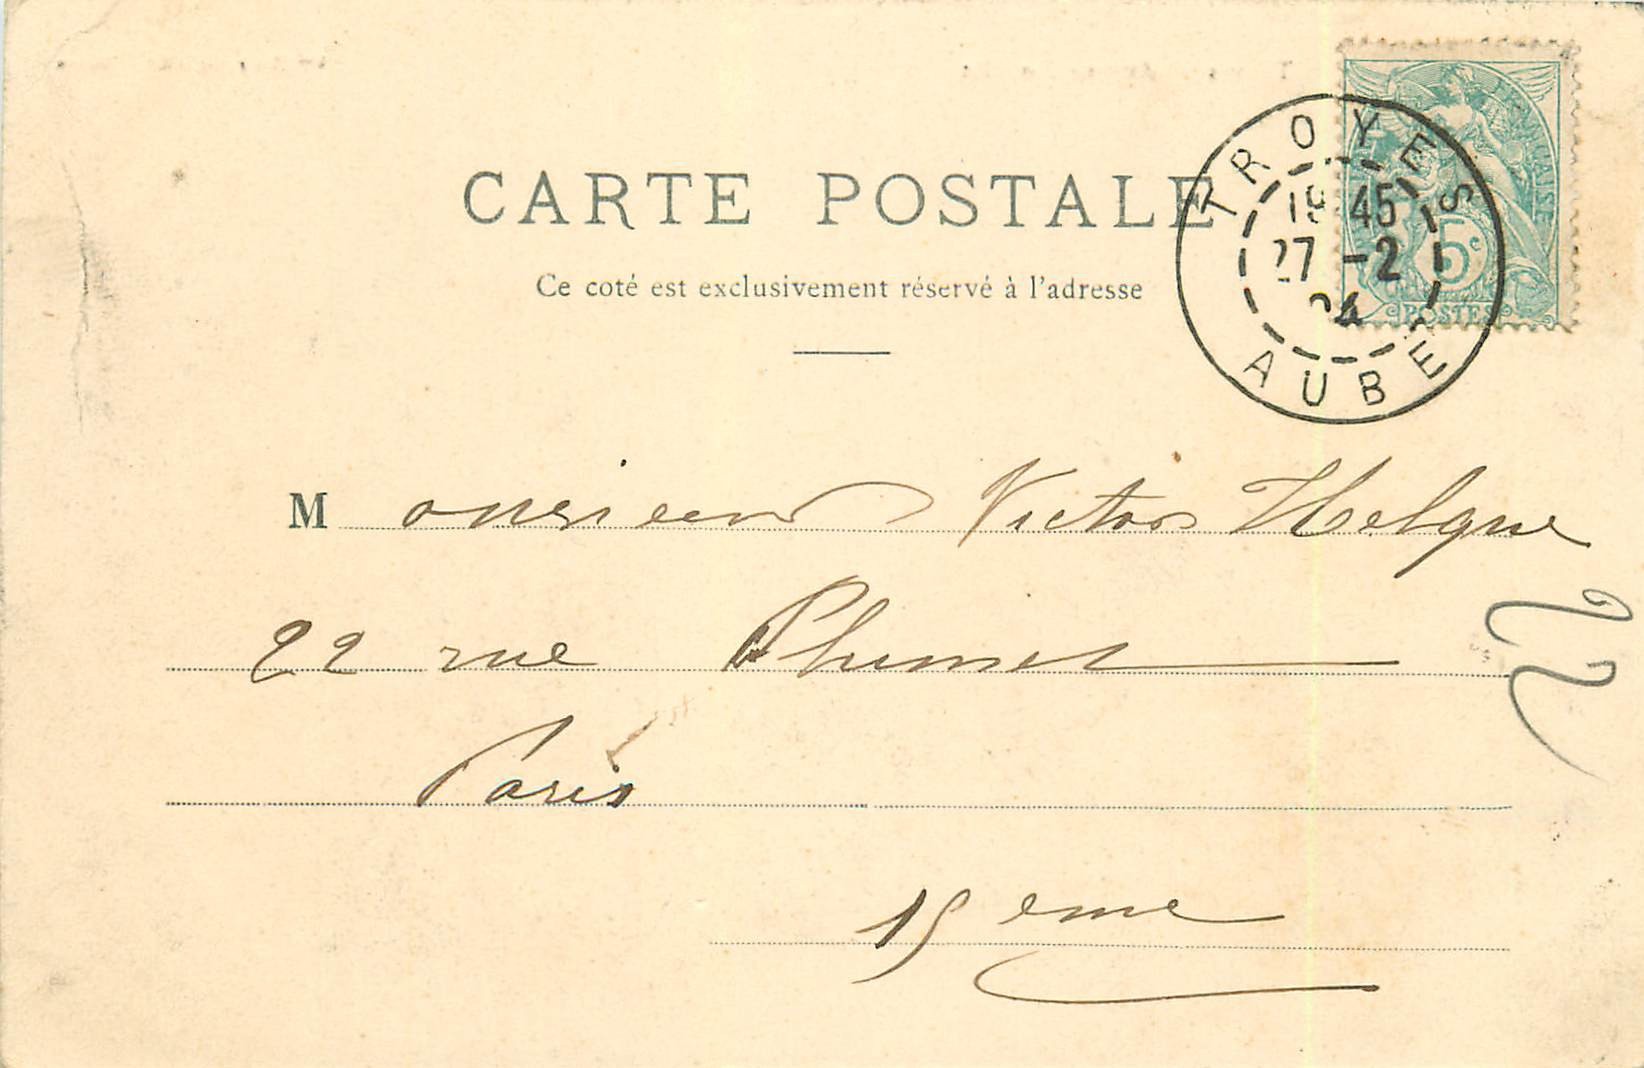 CARTE POSTALE
Ce coté est exclusivement réservé à l'adresse
TROYES
45
27 -2
AUBE
5c
POSTES
Monsieur Victor Helque
22 rue Plumet
Paris
15 eme
22